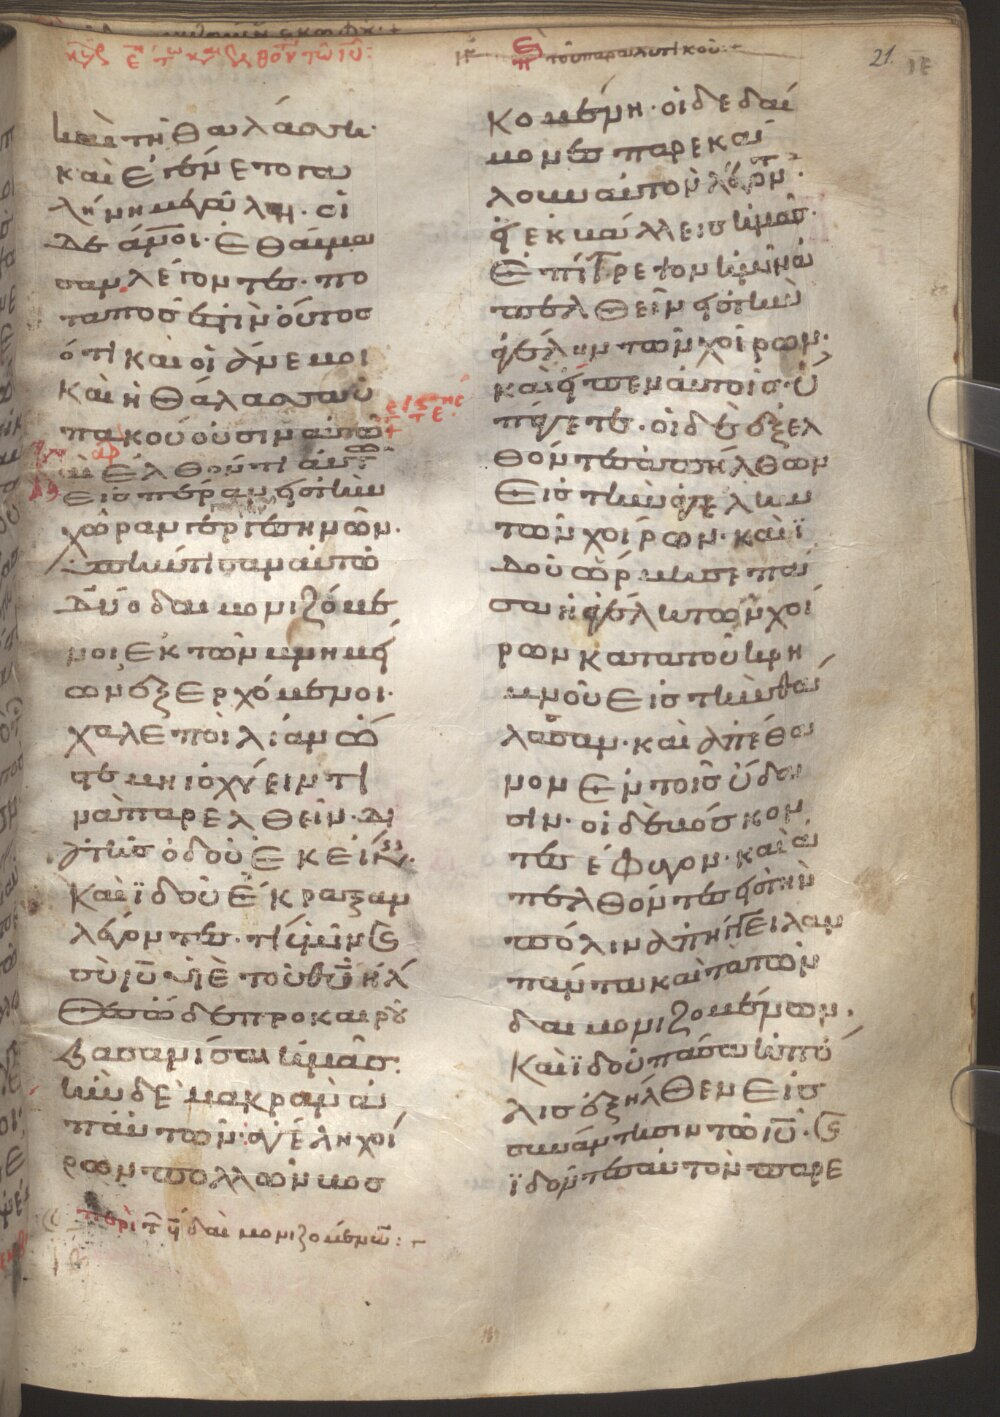 ΙΓ
τοῦ παραλυτικοῦ:
21
ΙΕ
καὶ τῆ θαλάσση·
καὶ ἐγένετο γα
λήνη μεγάλη· οἱ
δὲ ἄνοι· ἐθαύμα
σαν λέγοντες· πο
ταπός ἐστὶν οὗτος
ὅτι καὶ οἱ ἄνεμοι
καὶ ἡ θάλασσα ὑ
πακούουσιν αὐτῶ
κ ἐλθόντι αὐτῶ
εἰς πέραν εἰς τὴν
χώραν γεργεσηνῶν·
ὑπήντησαν αὐτῶ
δύο δαιμονιζόμε
νοι ἐκ τῶν μνημεί
ων ἐξερχόμενοι·
χαλεποὶ λίαν ὥ
στε μὴ ἰσχύειν τι
νὰ παρελθεῖν· δι
ὰ τῆς ὁδοῦ ἐκείνης·
Καὶ ἰδοὺ ἔκραξαν
λέγοντες· τί ἡμῖν κ
σὺ ἰῦ υἱὲ τοῦ θῦ ἦλ
θες ὧδε προ καιροῦ
βασανίσαι ἡμᾶς·
ἦν δὲ μακρὰν ἀ
π' αὐτῶν· ἀγέλη χοί
ρων πολλῶν βοσ
περὶ τ β δαιμονιζομένων:
κομένη· οἱ δὲ δαί
μονες παρεκά
λουν αὐτὸν λέγοντ·
εἰ ἐκβάλλεις ἡμᾶς·
Ἐπίτρεψον ἡμῖν ἀ
πελθεῖν εἰς τὴν
ἀγέλην τῶν χοίρων·
καὶ εἶπεν αὐτοῖς· ὑ
πάγετε· οἱ δὲ ἐξελ
θόντες ἀπῆλθον
εἰς τὴν ἀγέλην
τῶν χοίρων· καὶ ἰ
δοὺ ὥρμησε πᾶ
σα ἡ ἀγέλη τῶν χοί
ρων κατὰ τοῦ κρη
μνοῦ εἰς τὴν θά
λασσαν· καὶ ἀπέθα
νον ἐν τοῖς ὕδα
σιν· οἱ δὲ βόσκον
τες ἔφυγον· καὶ ἀ
πελθόντες εἰς τὴν
πόλιν ἀπήγγειλαν
πάντα καὶ τὰ τῶν
δαιμονιζομένων·
Καὶ ἰδοὺ πᾶσα ἡ πό
λις ἐξῆλθεν εἰς
συνάντησιν τῶ ἰῦ· κ
ἰδόντες αὐτὸν παρε